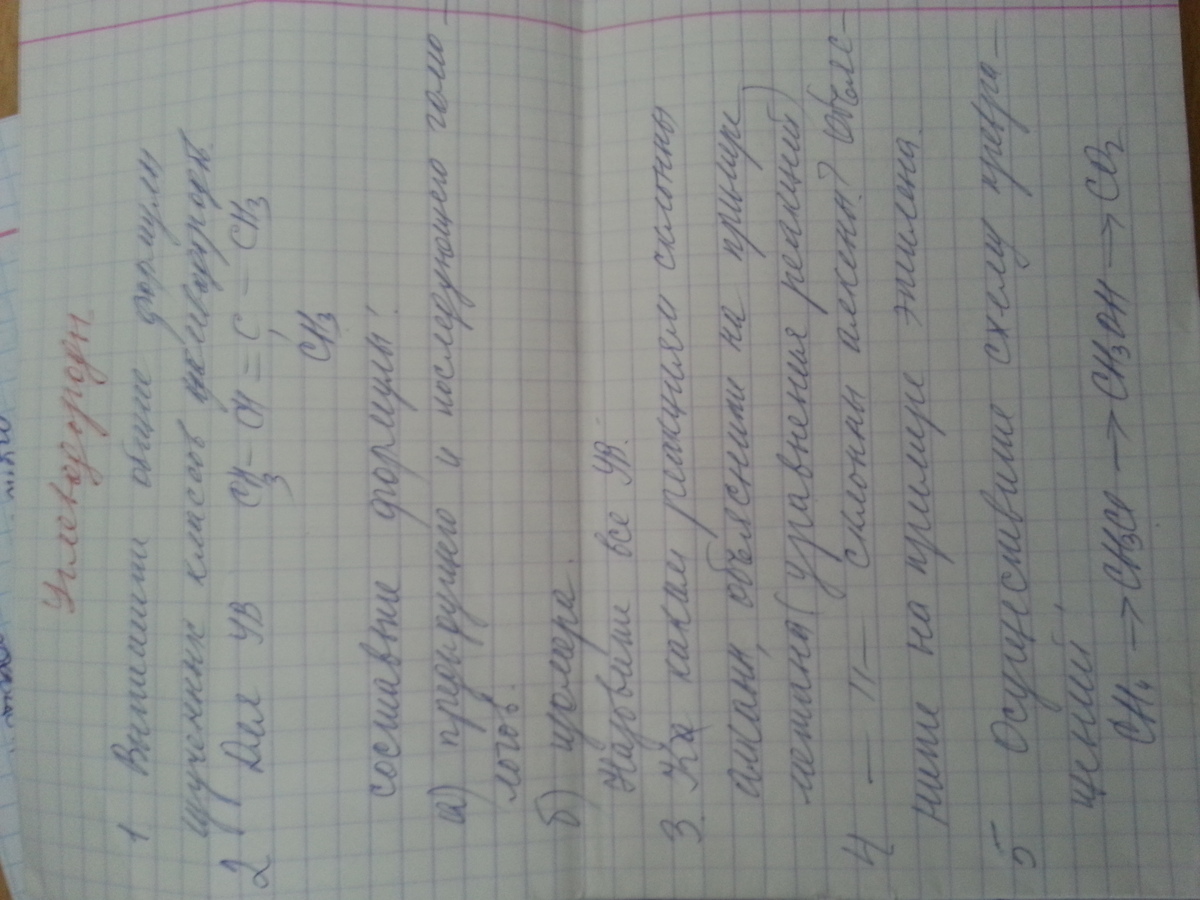 Углеводороды
1. Выпишите общие формулы
изученных классов углеводородов.
2 Для УВ CH₃ – CH = C – CH₃
CH₃
составьте формулы:
а) предыдущего и последующего гомо-
логов.
б) изомера.
Назовите все УВ.
3. К каким реакциям склонны
алканы, объясните на примере
метана (уравнения реакций)
4 — // — склонны алкены? Объяс-
ните на примере этилена.
5 Осуществите схему превра-
щений:
CH₄ → CH₃Cl → CH₃OH → CO₂